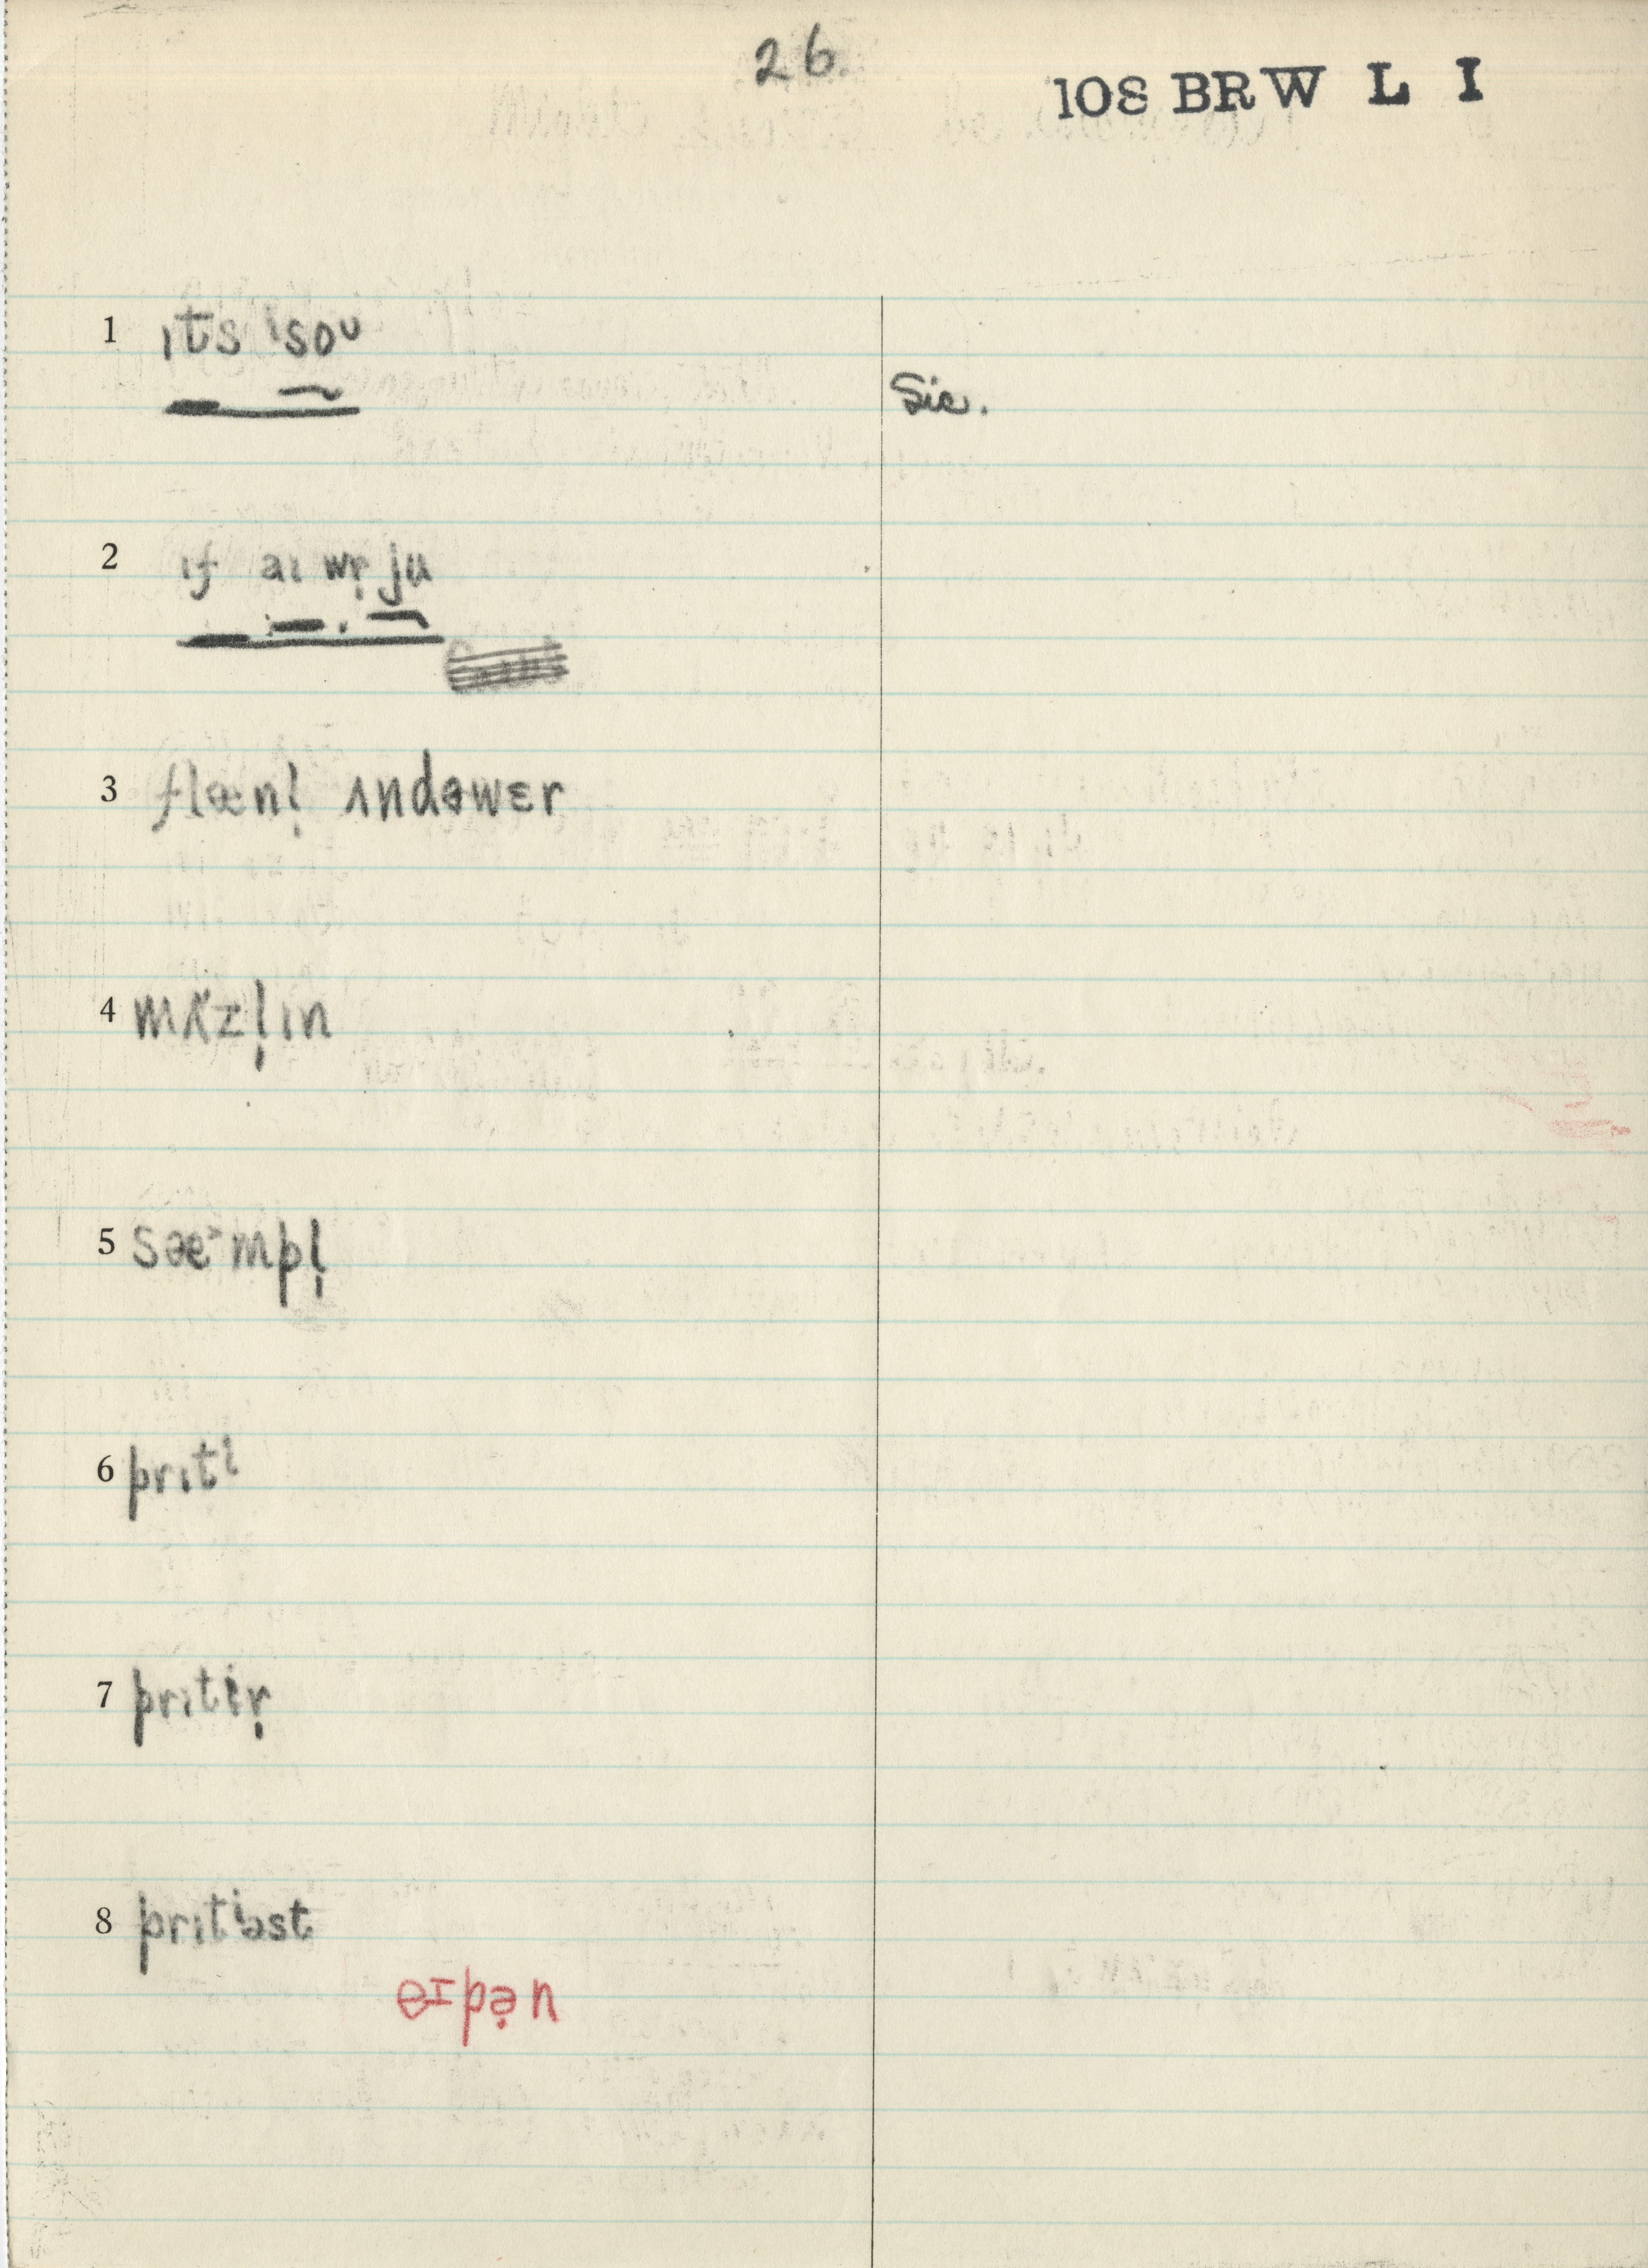 26.
108 BRW L I
1 ɪts ˈsoᴜ
Sic.
2 ɪf aɪ wr̩ ju
3 flænl̩ ʌndəwɛr
4 mʌ̈zl̩ɪn
5 sæᵊmpl̩
6 prɪtɪ
7 prɪtɨr̩
8 prɪtɨəst
eɪpə̣n